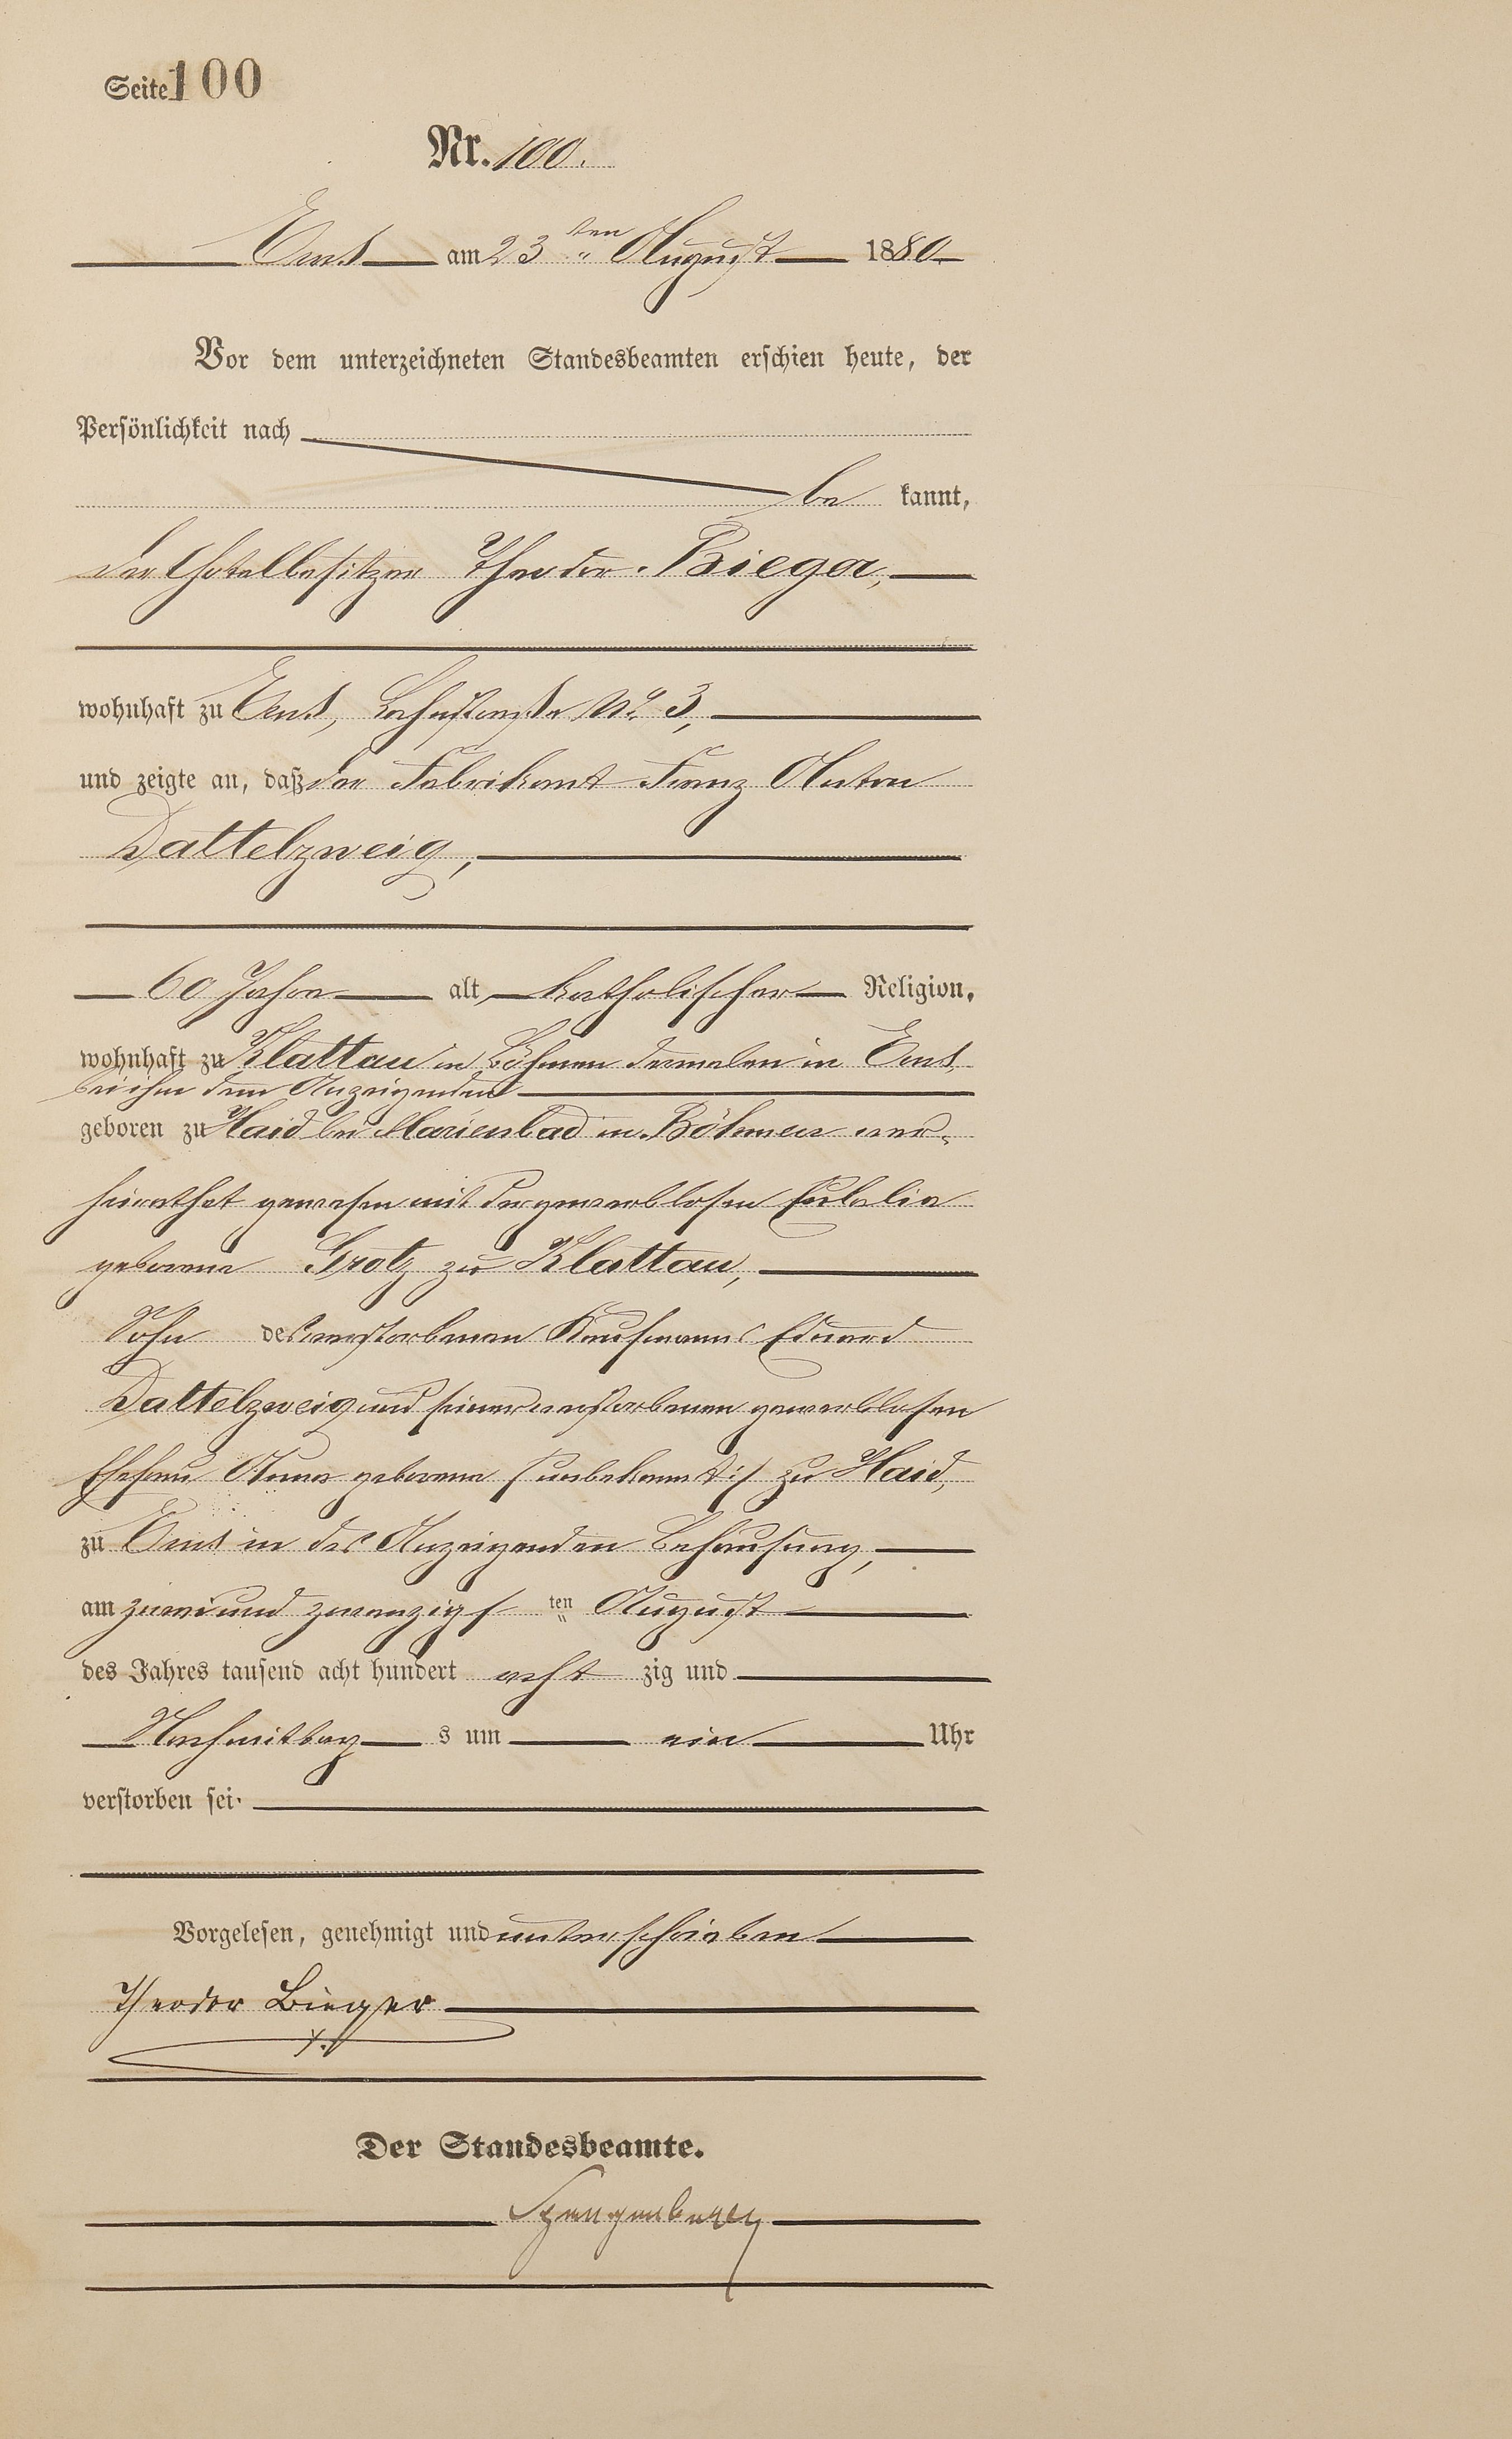 Seite 100
Nr. 100.
Ems am 23ten August 1880
Vor dem unterzeichneten Standesbeamten erschien heute, der
Persönlichkeit nach
be kannt,
der Hotelbesitzer Theodor Bieger,
wohnhaft zu Ems, Bahnstraße No. 3,
und zeigte an, daß der Fabrikant Franz Anton
Dattelzweig,
60 Jahre alt, katholischer Religion,
wohnhaft zu Klattau in Böhmen dermalen in Ems
bei ihm dem Anzeigenden
geboren zu Haid bei Marienbad in Böhmen ver-
heirathet gewesen mit der gewerblosen
geborene Grotz zu Klattau,
Sohn des verstorbenen Kaufmanns Eduard
Dattelzweig und seiner verstorbenen gewerblosen
Ehefrau Anna geborene /:unbekannt:/ zu Haid,
zu Ems in des Anzeigenden Behausung,
am zweiundzwanzigs ten August
des Jahres tausend acht hundert acht zig und
Nachmittag s um ein Uhr
verstorben sei.
Vorgelesen, genehmigt und unterschrieben
Theodor Bieger
Der Standesbeamte.
Spangenberg